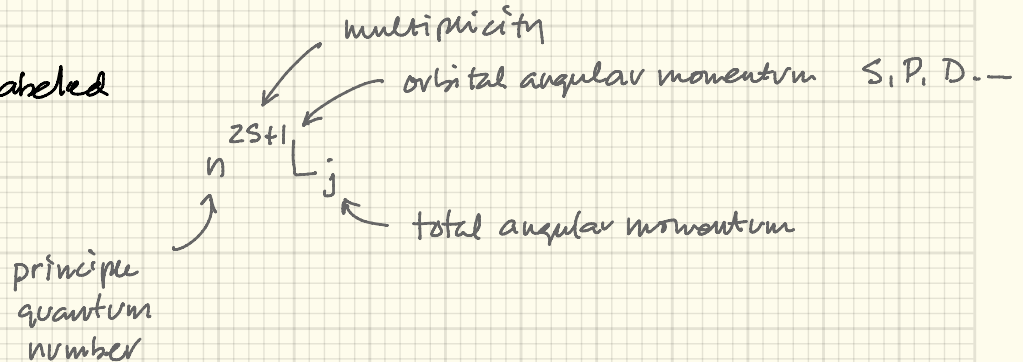 multiplicity
abeled
orbital angular momentum S, P, D...
n 2S+1 L j
total angular momentum
principle
quantum
number